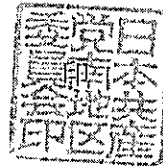 日本共産
党南地区
委員会印
印